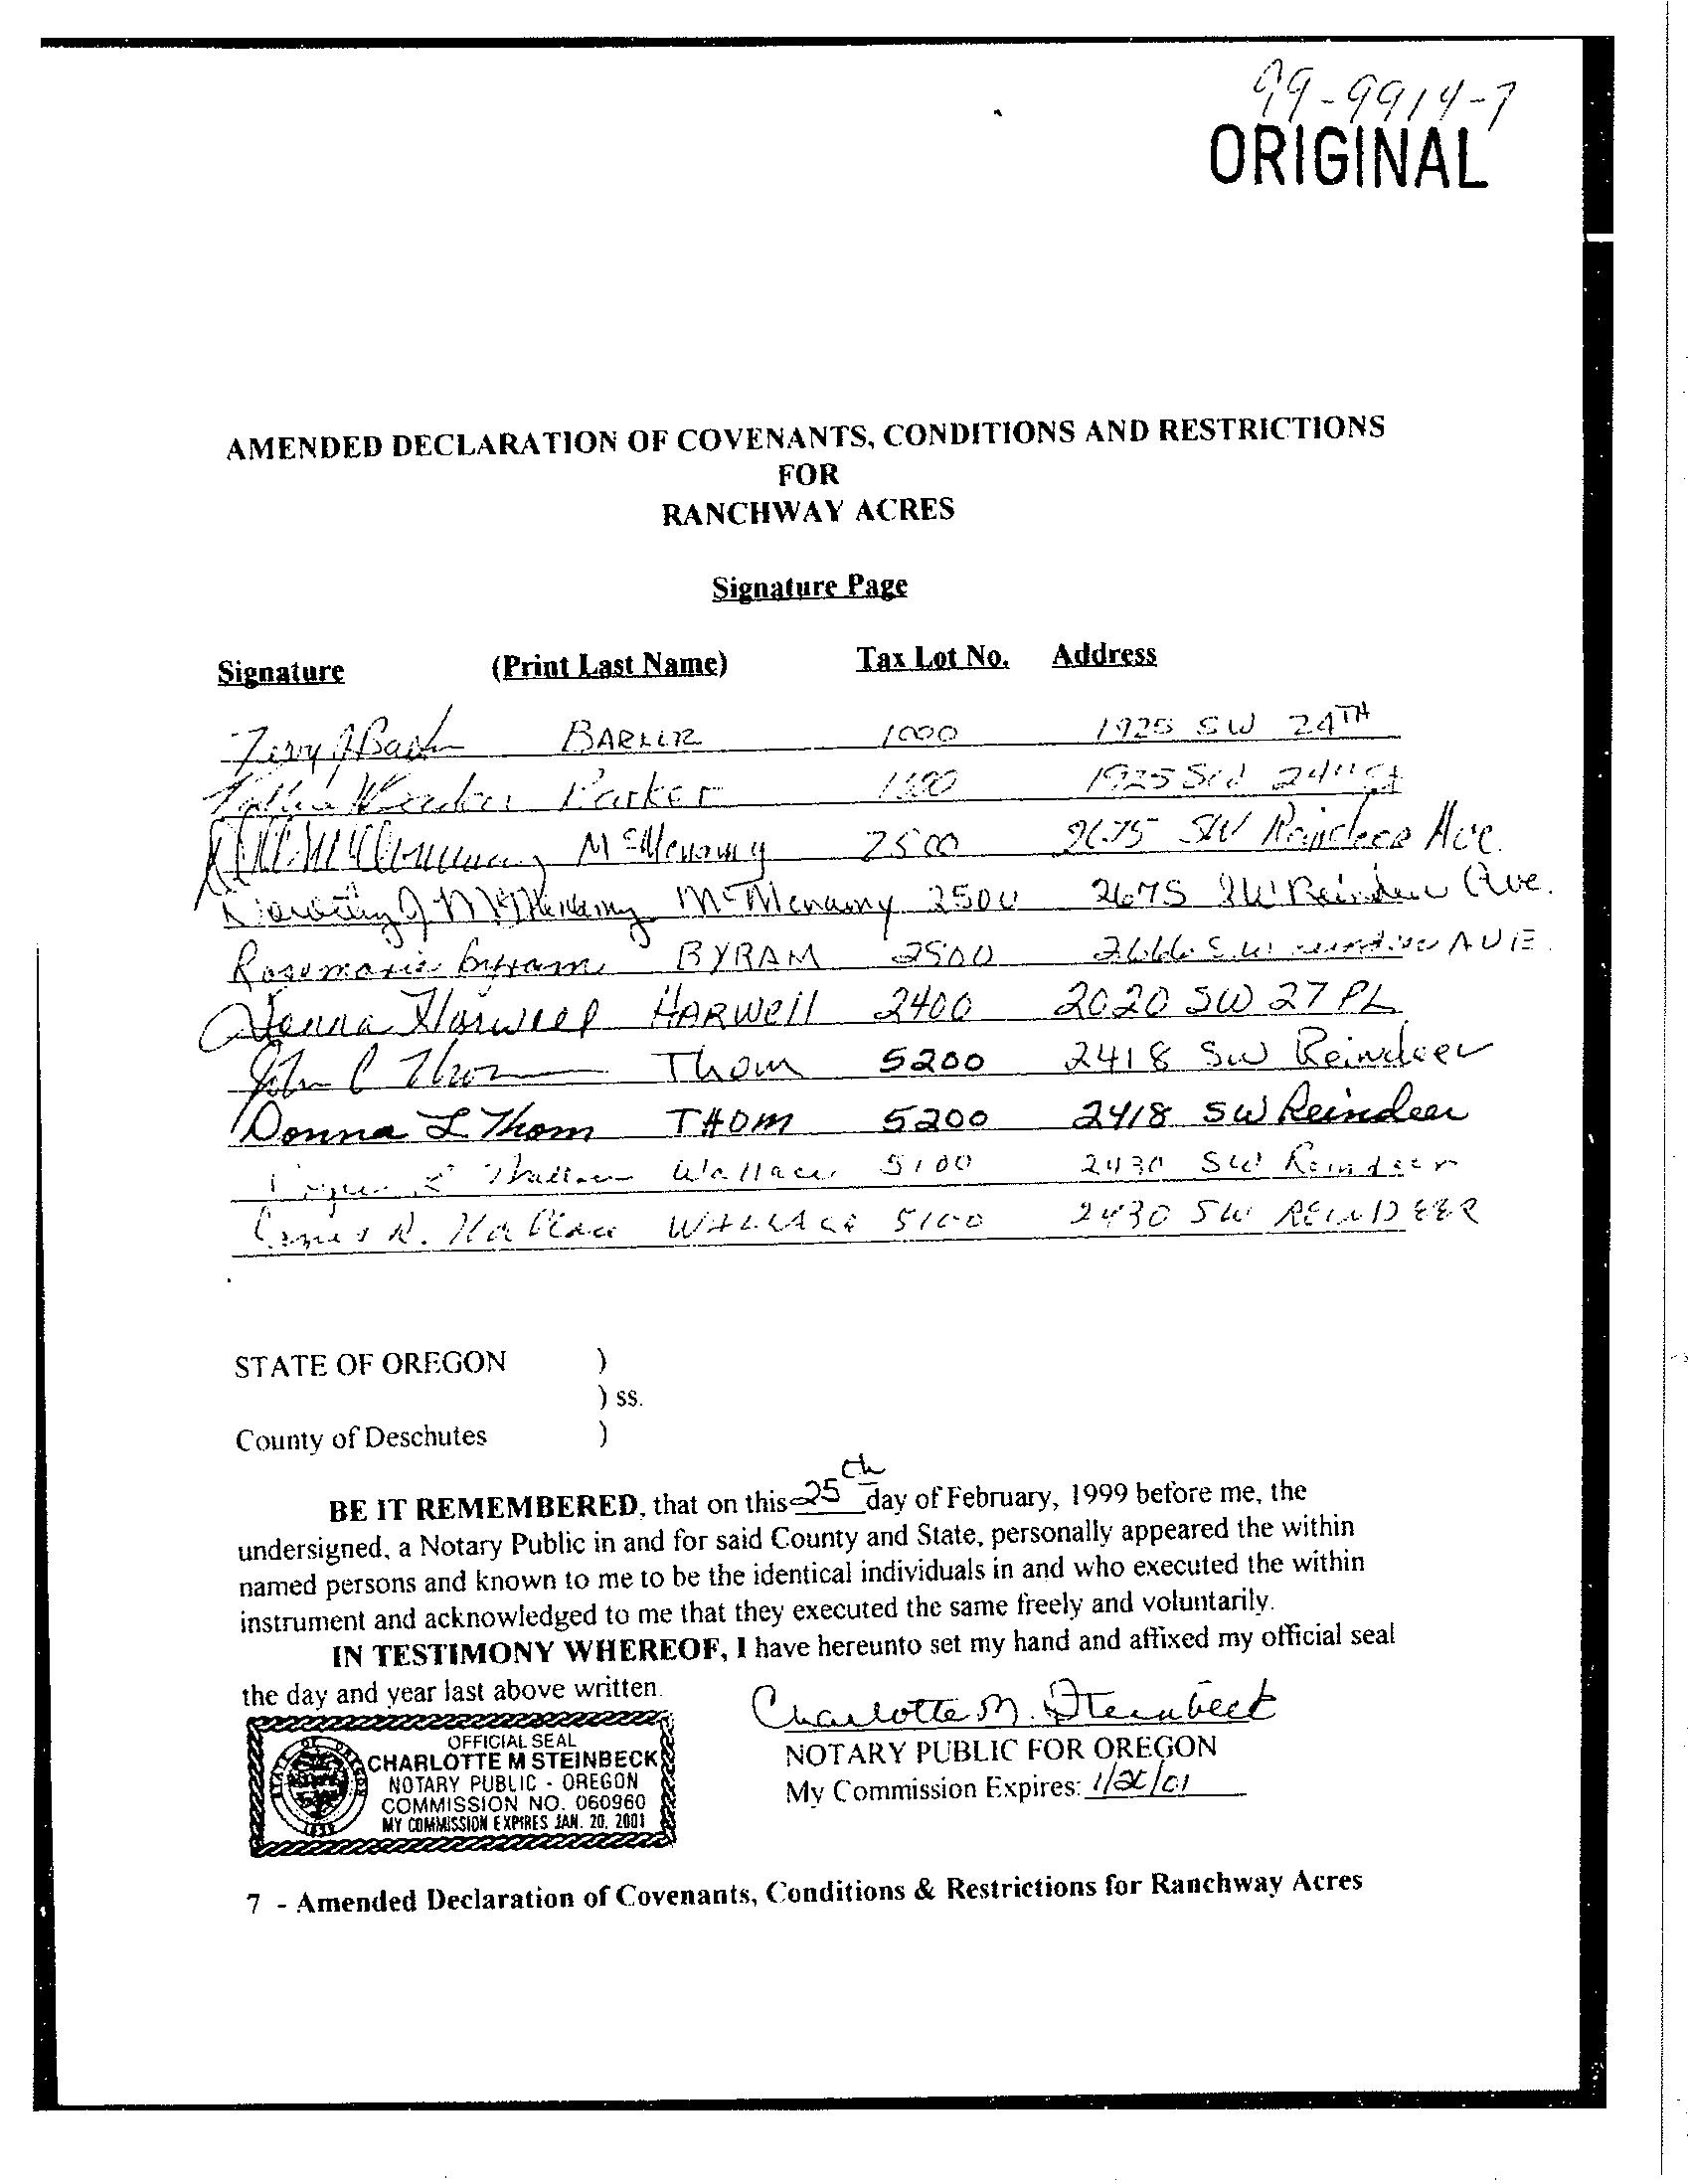 99-9914-7
ORIGINAL
AMENDED DECLARATION OF COVENANTS, CONDITIONS AND RESTRICTIONS
FOR
RANCHWAY ACRES
Signature Page
Signature (Print Last Name) Tax Lot No. Address
Terry J 1000 1925 SW 24TH
1925 24th St
McMenamy 2500 2675 SW Reindeer Ave.
Dorothy J McMenamy McMenamy 2500 2675 SW Reindeer Ave.
Rosemarie Byram BYRAM 2500 2666 S.W. AVE.
Harwell HARWell 2400 2020 SW 27 PL
John C Thom Thom 5200 2418 SW Reindeer
Donna L Thom THOM 5200 2418 SW Reindeer
Wallace Wallace 5100 2430 SW Reindeer
R. Wallace WALLACE 5100 2430 SW REINDEER
STATE OF OREGON )
) ss.
County of Deschutes )
BE IT REMEMBERED, that on this 25th day of February, 1999 before me, the
undersigned, a Notary Public in and for said County and State, personally appeared the within
named persons and known to me to be the identical individuals in and who executed the within
instrument and acknowledged to me that they executed the same freely and voluntarily.
IN TESTIMONY WHEREOF, I have hereunto set my hand and affixed my official seal
the day and year last above written.
Charlotte M. Steinbeck
NOTARY PUBLIC FOR OREGON
My Commission Expires: 1/20/01
OFFICIAL SEAL
CHARLOTTE M STEINBECK
NOTARY PUBLIC - OREGON
COMMISSION NO. 060960
MY COMMISSION EXPIRES JAN. 20, 2001
STATE OF OREGON
1859
7 - Amended Declaration of Covenants, Conditions & Restrictions for Ranchway Acres